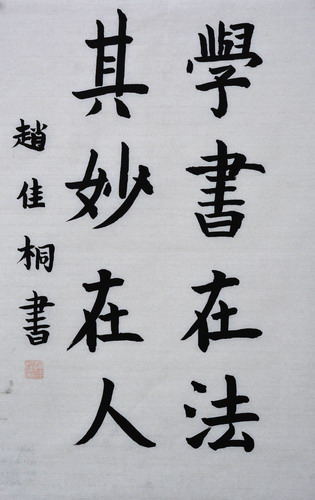 學書在法
其妙在人
趙佳桐書